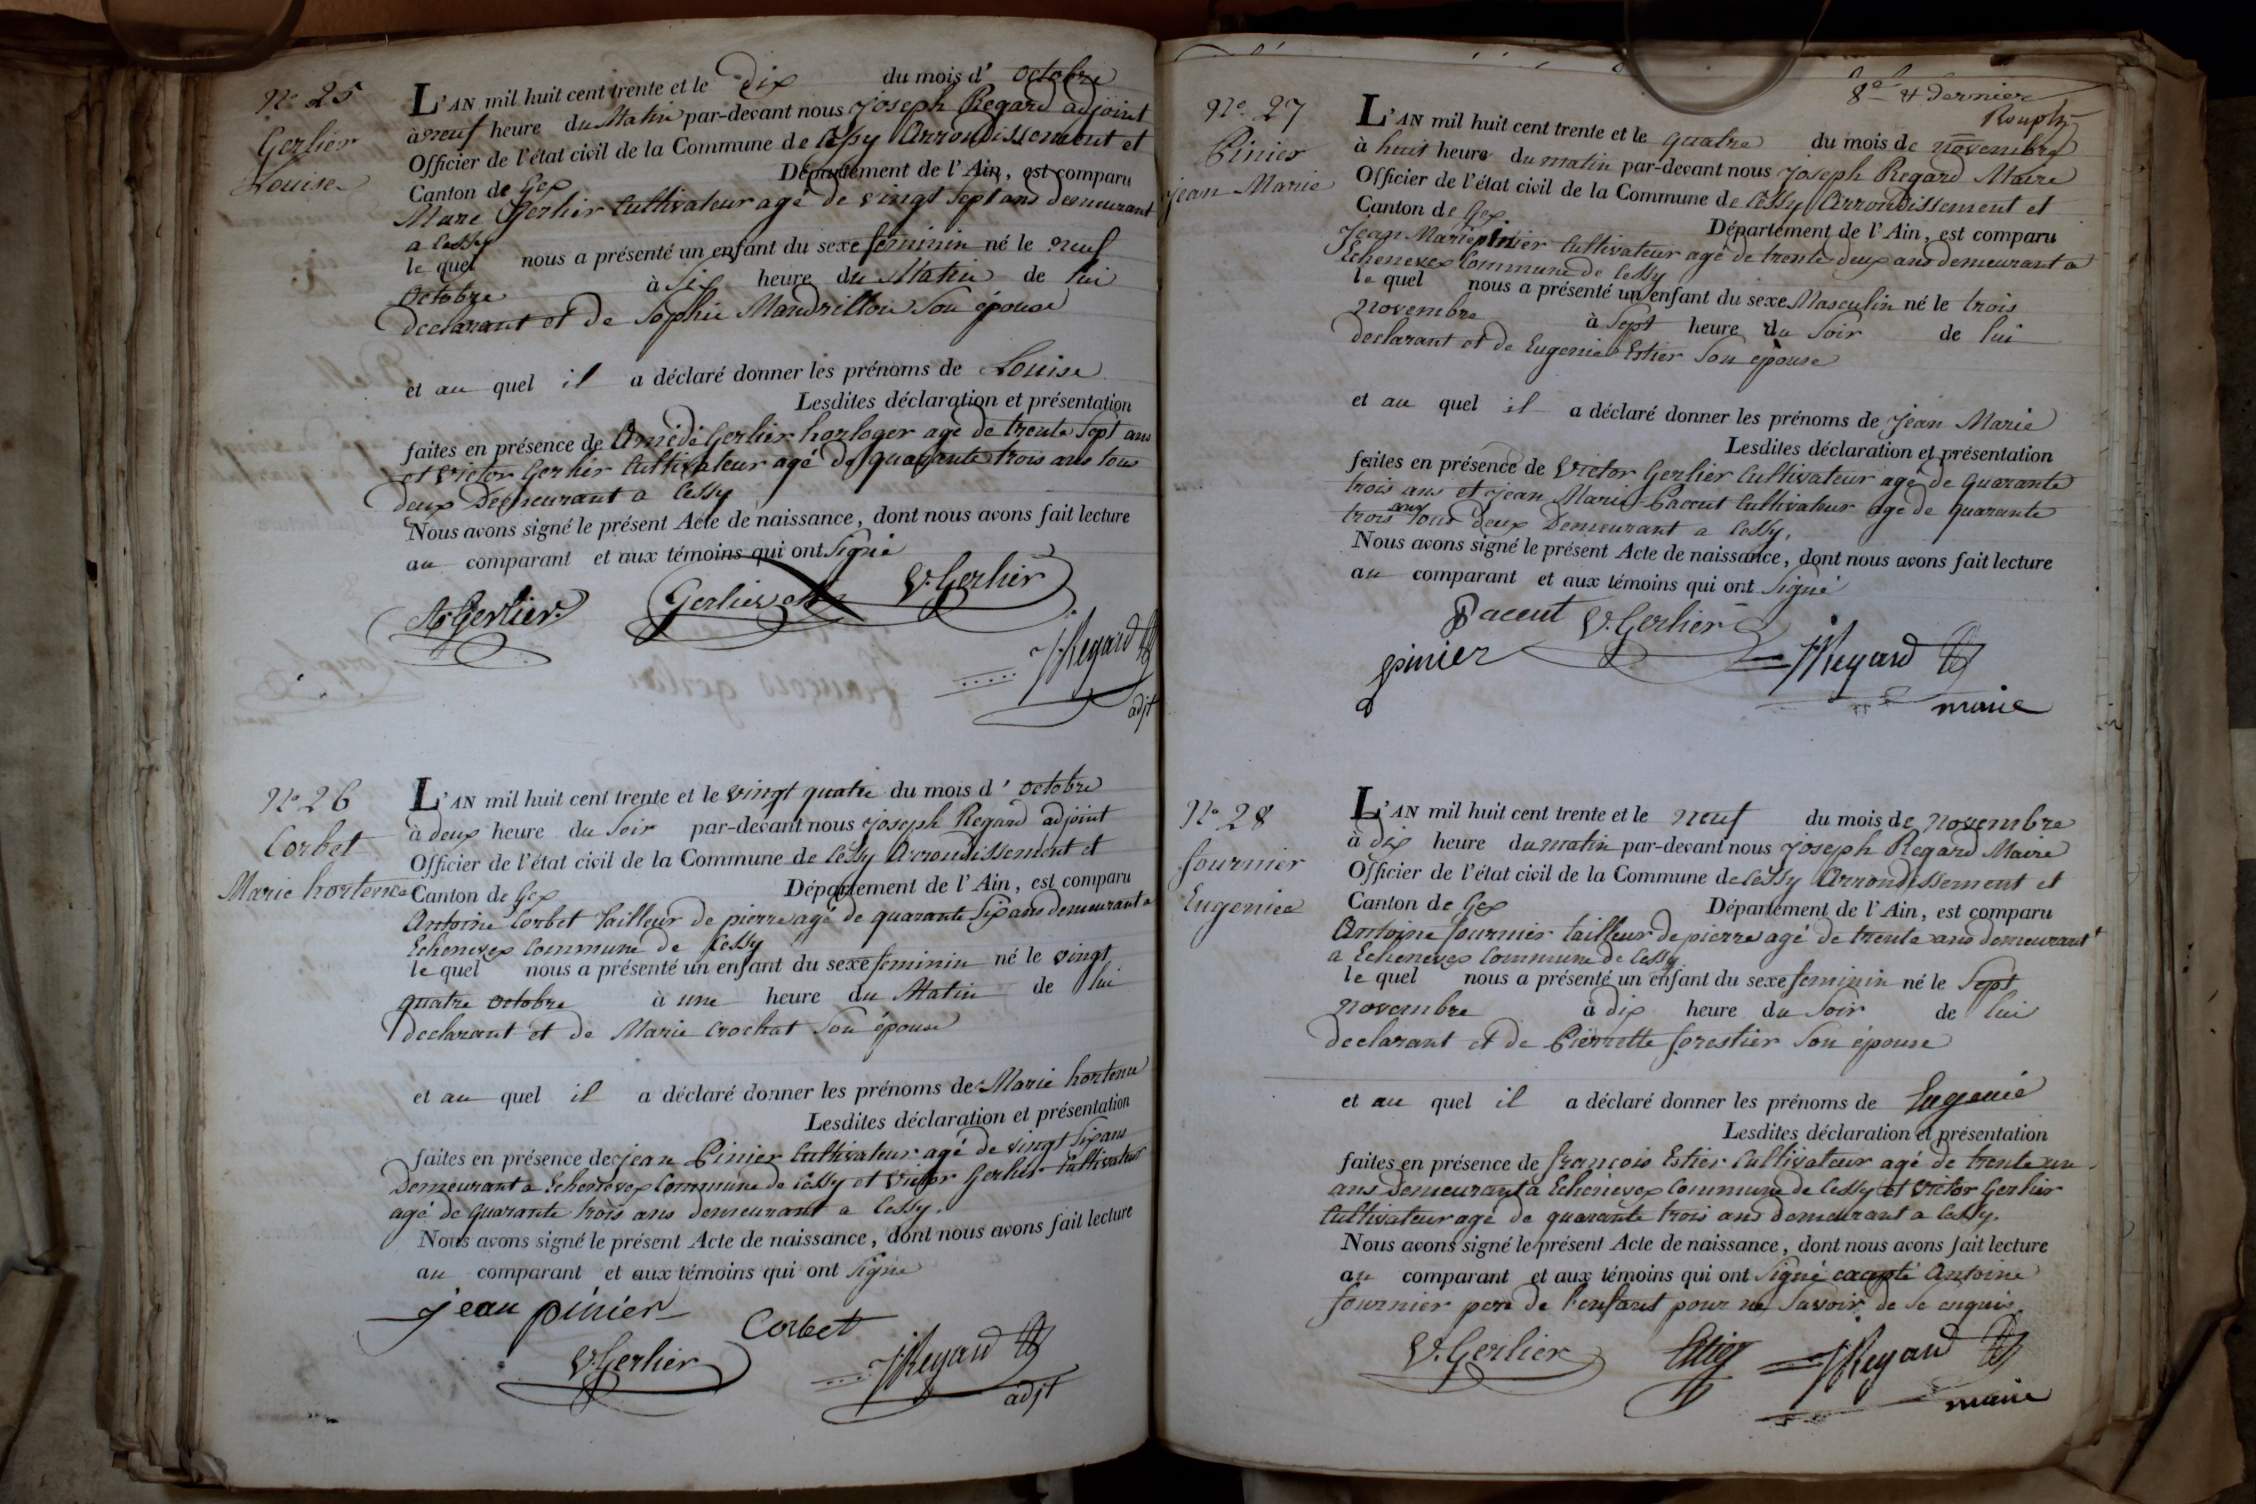 No 25
Gerlier
Louise
L'AN mil huit cent trente et le dix du mois d' octobre
à neuf heure du Matin par-devant nous joseph Regard adjoint
Officier de l'état civil de la Commune de Cessy Arrondissement et
Canton de Gex Département de l'Ain, est comparu
Marc Gerlier Cultivateur agé de vingt sept ans demeurant
a Cessy
le quel nous a présenté un enfant du sexe feminin né le neuf
octobre à Six heure du Matin de lui
declarant et de Sophie Mandrillon Son épouse
et au quel il a déclaré donner les prénoms de Louise
Lesdites déclaration et présentation
faites en présence de Amédé Gerlier horloger agé de trente Sept ans
et victor Gerlier Cultivateur agé de quarante trois ans tous
deux Demeurant a Cessy
Nous avons signé le présent Acte de naissance, dont nous avons fait lecture
au comparant et aux témoins qui ont Signé
Gerlier
Gerlier
V. Gerlier
J Regard
adjt
No 26
Corbet
Marie hortence
L'AN mil huit cent trente et le vingt quatre du mois d' octobre
à deux heure du Soir par-devant nous joseph Regard adjoint
Officier de l'état civil de la Commune de Cessy Arrondissement et
Canton de Gex Département de l'Ain, est comparu
Antoine Corbet tailleur de pierre agé de quarante Six ans demeurant a
Echenevex Commune de Cessy
le quel nous a présenté un enfant du sexe feminin né le vingt
quatre octobre à une heure du Matin de lui
declarant et de Marie Crochat Son épouse
et au quel il a déclaré donner les prénoms de Marie hortence
Lesdites déclaration et présentation
faites en présence de jean Pinier Cultivateur agé de vingt Six ans
Demeurant a Echenevex Commune de Cessy et victor Gerlier Cultivateur
agé de quarante trois ans demeurant a Cessy.
Nous avons signé le présent Acte de naissance, dont nous avons fait lecture
au comparant et aux témoins qui ont Signé
jean pinier
Corbet
V. Gerlier
J Regard
adjt
8e & dernier
No 27
Pinier
jean Marie
L'AN mil huit cent trente et le quatre du mois de novembre
à huit heure du matin par-devant nous joseph Regard Maire
Officier de l'état civil de la Commune de Cessy Arrondissement et
Canton de Gex Département de l'Ain, est comparu
jean Marie pinier Cultivateur agé de trente deux ans demeurant a
Echenevex Commune de Cessy
le quel nous a présenté un enfant du sexe Masculin né le trois
novembre à Sept heure du Soir de lui
declarant et de Eugenie Estier Son épouse
et au quel il a déclaré donner les prénoms de jean Marie
Lesdites déclaration et présentation
faites en présence de Victor Gerlier Cultivateur agé de quarante
trois ans et jean Marie Pacout Cultivateur agé de quarante
trois ans tous deux Demeurant a Cessy.
Nous avons signé le présent Acte de naissance, dont nous avons fait lecture
au comparant et aux témoins qui ont Signé
Pacout V. Gerlier
pinier
J Regard
maire
No 28
fournier
Eugenie
L'AN mil huit cent trente et le neuf du mois de novembre
à dix heure du matin par-devant nous joseph Regard Maire
Officier de l'état civil de la Commune de Cessy Arrondissement et
Canton de Gex Département de l'Ain, est comparu
Antoine fournier tailleur de pierre agé de trente ans demeurant
a Echenevex Commune de Cessy
le quel nous a présenté un enfant du sexe feminin né le Sept
novembre à dix heure du Soir de lui
declarant et de Pierrette forestier Son épouse
et au quel il a déclaré donner les prénoms de Eugenie
Lesdites déclaration et présentation
faites en présence de françois Estier Cultivateur agé de trente un
ans Demeurant a Echenevex Commune de Cessy et victor Gerlier
Cultivateur agé de quarante trois ans demeurant a Cessy.
Nous avons signé le présent Acte de naissance, dont nous avons fait lecture
au comparant et aux témoins qui ont Signé excepté Antoine
fournier pere de l'enfant pour ne Savoir de Se enquis
V. Gerlier
Estier
J Regard
maire